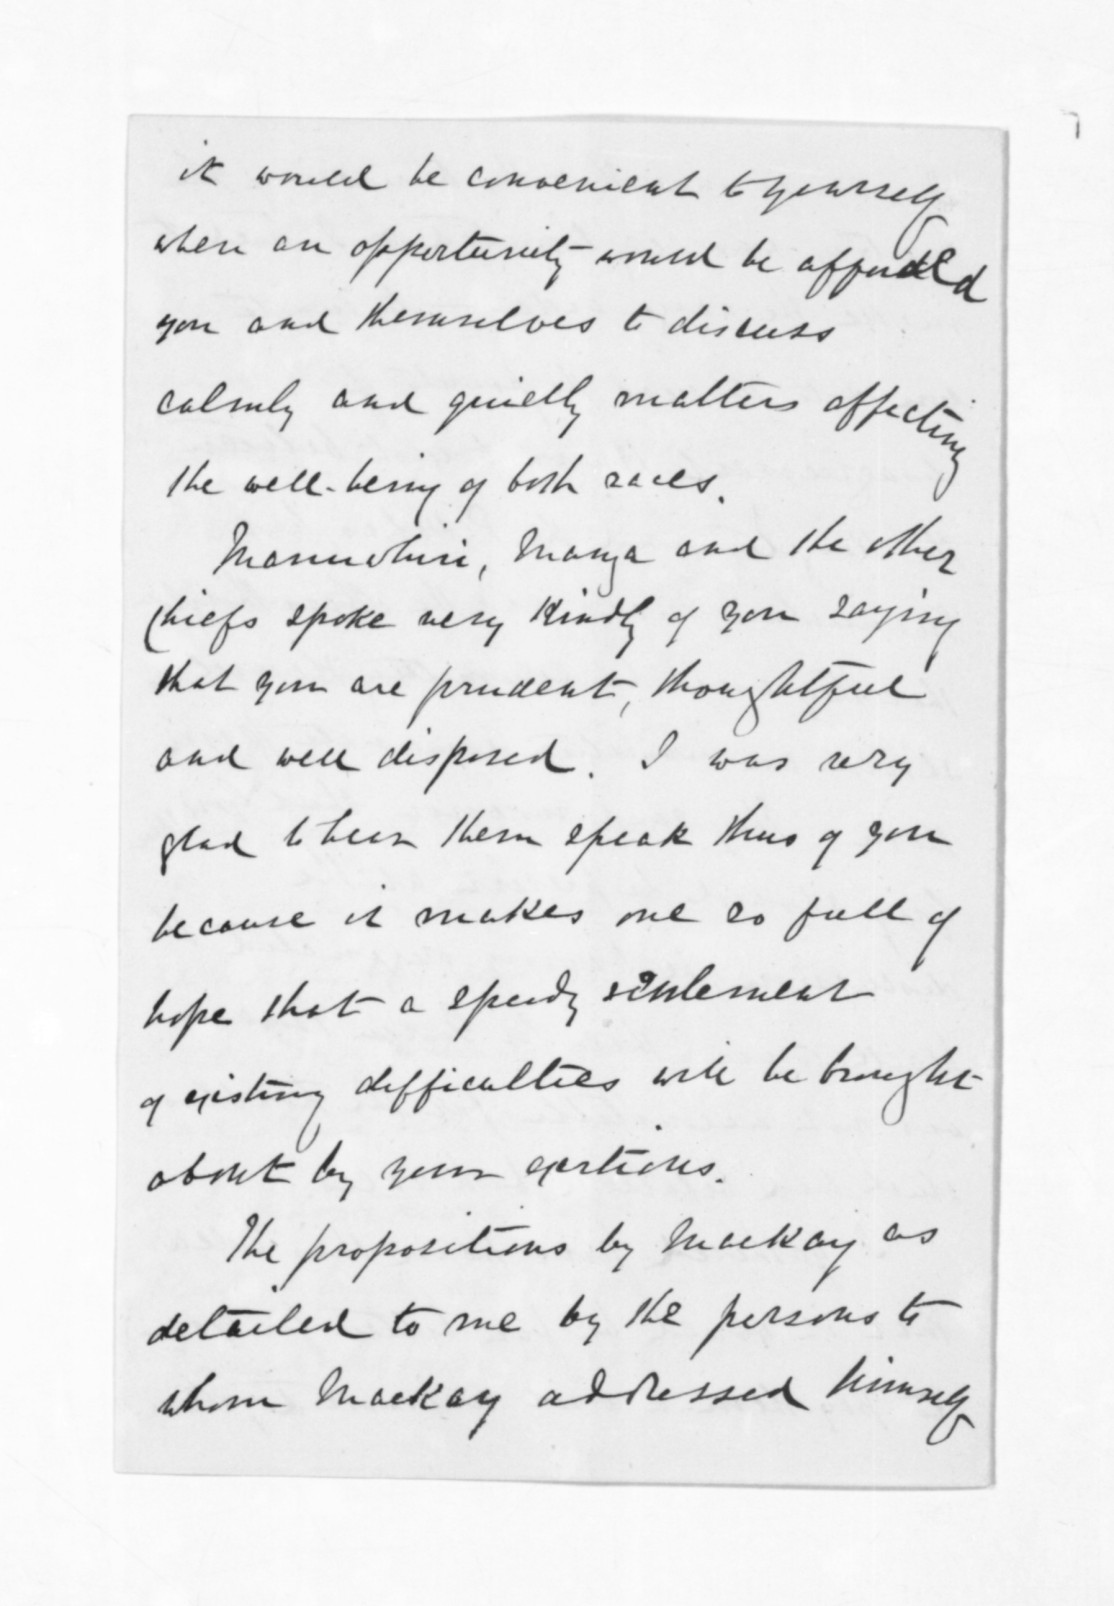 it would be convenient to yourself
when an opportunity would be afforded
you and themselves to discuss
calmly and quietly matters affecting
the well-being of both races.
Manuwhiri, Manga and the other
Chiefs spoke very kindly of you saying
that you are prudent, thoughtful
and well disposed. I was very
glad to hear them speak thus of you
because it makes me so full of
hope that a speedy settlement
of existing difficulties will be brought
about by your exertions.
The propositions by Mackay as
detailed to me by the persons to
whom Mackay addressed himself